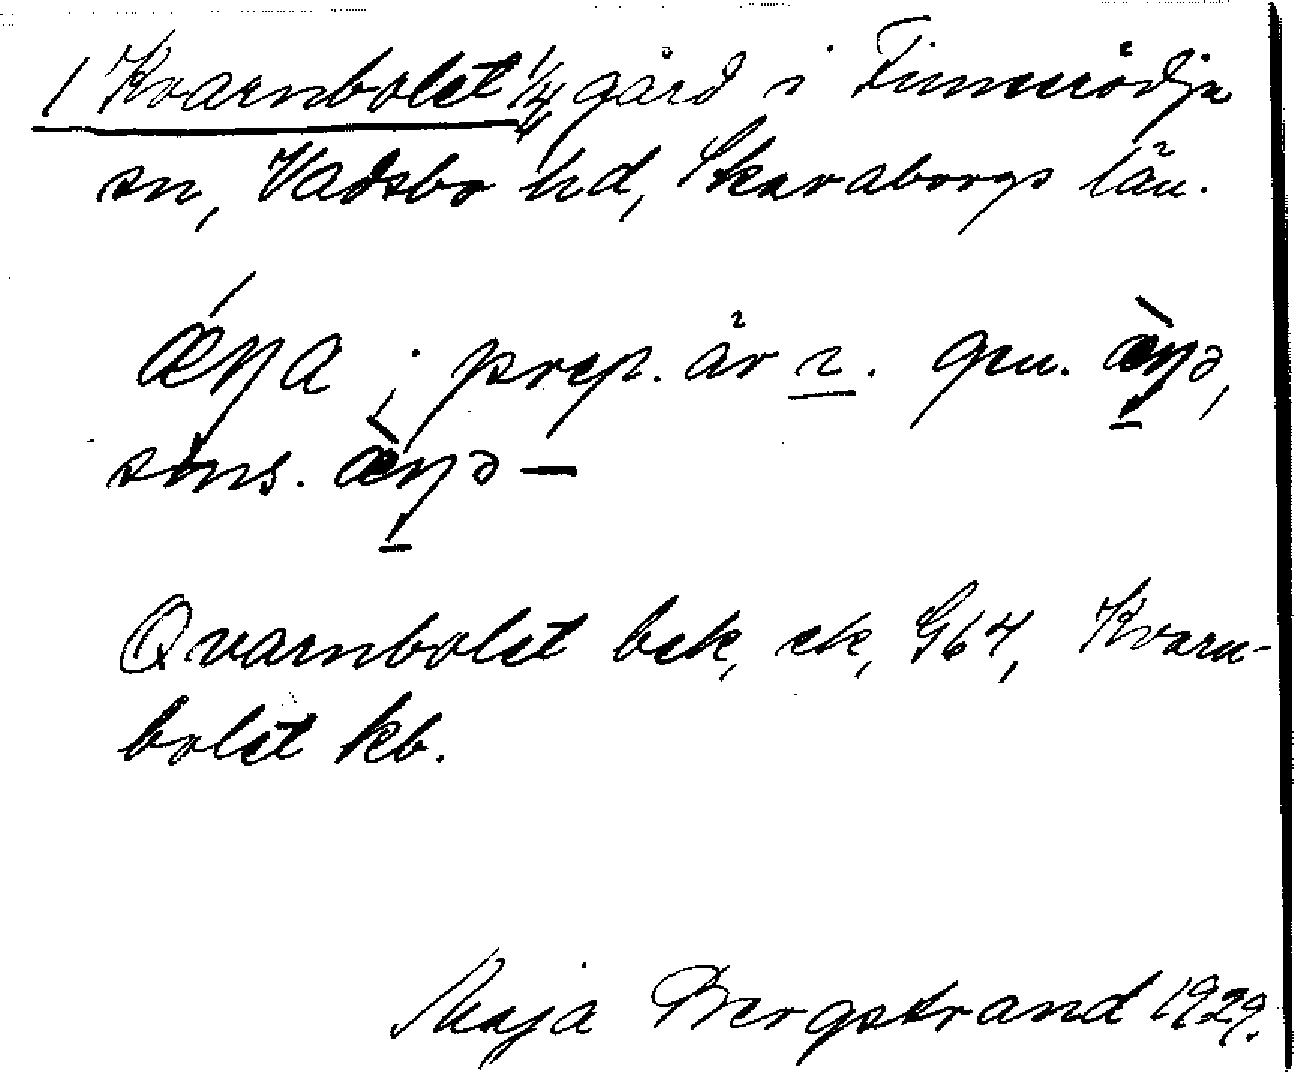 1 Kvarnbolet 1/4 gård i Finnerödja
sn, Vadsbo hd, Skaraborgs län.
ǽŋa ; prep. är i. gen. æ̀ŋə,
sms. æ̀ŋə –
Qvarnbolet bek, ek, G64, Kvarn-
bolet kb.
Maja Bergstrand 1929.